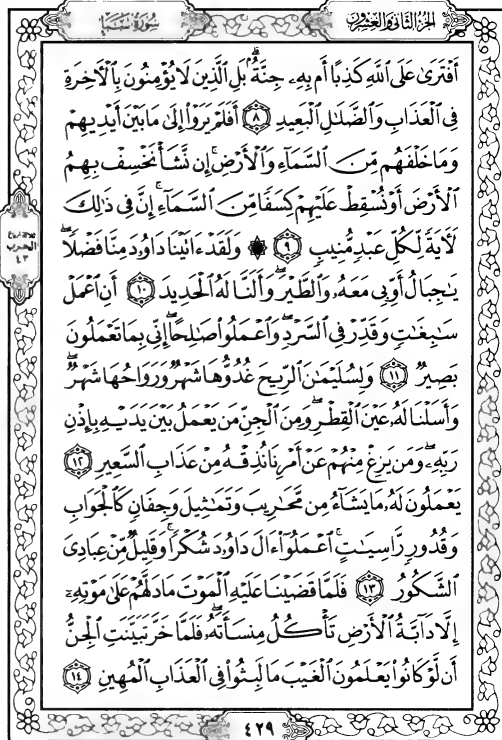 الجزء الثاني والعشرون
سورة سبإ
أَفْتَرَىٰ عَلَى ٱللَّهِ كَذِبًا أَم بِهِۦ جِنَّةُۢ ۗ بَلِ ٱلَّذِينَ لَا يُؤْمِنُونَ بِٱلْـَٔاخِرَةِ
فِى ٱلْعَذَابِ وَٱلضَّلَـٰلِ ٱلْبَعِيدِ ٨ أَفَلَمْ يَرَوْا۟ إِلَىٰ مَا بَيْنَ أَيْدِيهِمْ
وَمَا خَلْفَهُم مِّنَ ٱلسَّمَآءِ وَٱلْأَرْضِ ۚ إِن نَّشَأْ نَخْسِفْ بِهِمُ
ٱلْأَرْضَ أَوْ نُسْقِطْ عَلَيْهِمْ كِسَفًا مِّنَ ٱلسَّمَآءِ ۚ إِنَّ فِى ذَٰلِكَ
لَـَٔايَةً لِّكُلِّ عَبْدٍ مُّنِيبٍ ٩ ۞ وَلَقَدْ ءَاتَيْنَا دَاوُۥدَ مِنَّا فَضْلًا ۖ
يَـٰجِبَالُ أَوِّبِى مَعَهُۥ وَٱلطَّيْرَ ۖ وَأَلَنَّا لَهُ ٱلْحَدِيدَ ١٠ أَنِ ٱعْمَلْ
سَـٰبِغَـٰتٍ وَقَدِّرْ فِى ٱلسَّرْدِ ۖ وَٱعْمَلُوا۟ صَـٰلِحًا ۖ إِنِّى بِمَا تَعْمَلُونَ
بَصِيرٌ ١١ وَلِسُلَيْمَـٰنَ ٱلرِّيحَ غُدُوُّهَا شَهْرٌ وَرَوَاحُهَا شَهْرٌ ۖ
وَأَسَلْنَا لَهُۥ عَيْنَ ٱلْقِطْرِ ۖ وَمِنَ ٱلْجِنِّ مَن يَعْمَلُ بَيْنَ يَدَيْهِ بِإِذْنِ
رَبِّهِۦ ۖ وَمَن يَزِغْ مِنْهُمْ عَنْ أَمْرِنَا نُذِقْهُ مِنْ عَذَابِ ٱلسَّعِيرِ ١٢
يَعْمَلُونَ لَهُۥ مَا يَشَآءُ مِن مَّحَـٰرِيبَ وَتَمَـٰثِيلَ وَجِفَانٍ كَٱلْجَوَابِ
وَقُدُورٍ رَّاسِيَـٰتٍ ۚ ٱعْمَلُوٓا۟ ءَالَ دَاوُۥدَ شُكْرًا ۚ وَقَلِيلٌ مِّنْ عِبَادِىَ
ٱلشَّكُورُ ١٣ فَلَمَّا قَضَيْنَا عَلَيْهِ ٱلْمَوْتَ مَا دَلَّهُمْ عَلَىٰ مَوْتِهِۦٓ
إِلَّا دَآبَّةُ ٱلْأَرْضِ تَأْكُلُ مِنسَأَتَهُۥ ۖ فَلَمَّا خَرَّ تَبَيَّنَتِ ٱلْجِنُّ
أَن لَّوْ كَانُوا۟ يَعْلَمُونَ ٱلْغَيْبَ مَا لَبِثُوا۟ فِى ٱلْعَذَابِ ٱلْمُهِينِ ١٤
الحزب
٤٣
٤٢٩